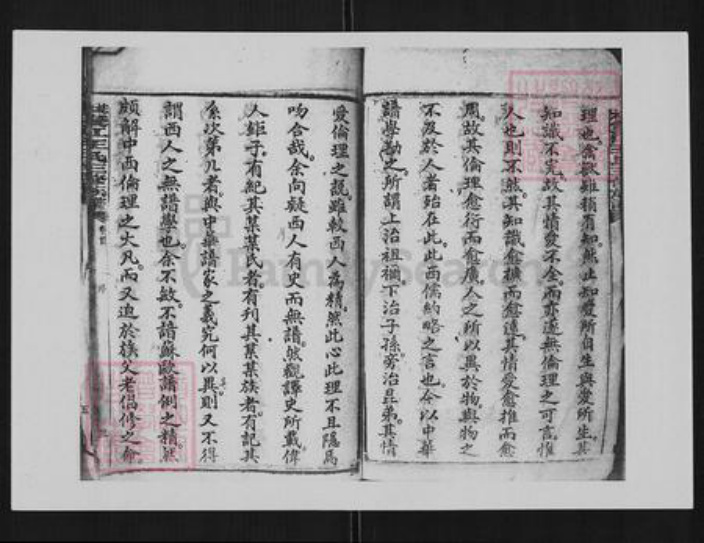 理也禽獸雖稍有知然止知愛所自生與愛所生其
知識不完故其情愛不全而亦遂無倫理之可言惟
人也則不然其知識愈擴而愈遠其情愛愈推而愈
周故其倫理愈衍而愈廣人之所以異於物與物之
不及於人者殆在此此西儒約略之言也今以中華
譜學勘之所謂上治祖禰下治子孫旁治昆弟其情
愛倫理之說雖較西人為精然此心此理不且隱焉
吻合哉余向疑西人有史而無譜然觀譯史所載偉
人鉅子有紀其某某氏者有列其某某族者有記其
系次第几者與中華譜家之義究何以異則又不得
謂西人之無譜學也余不敏不諳蘇歐譜例之精然
頗解中西倫理之大凡而又迫於族父老倡修之命
FamilySearch